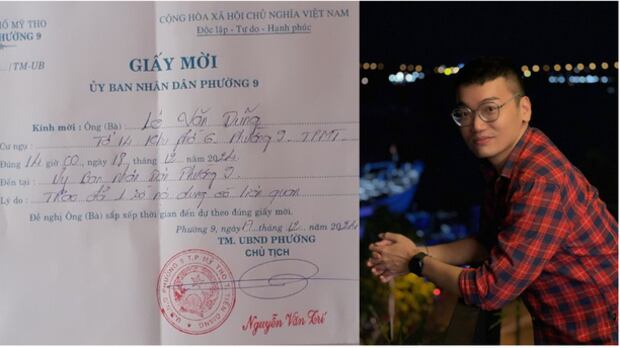 CỘNG HÒA XÃ HỘI CHỦ NGHĨA VIỆT NAM
Ố MỸ THO
PHƯỜNG 9
Độc lập - Tự do - Hạnh phúc
/TM-UB
GIẤY MỜI
ỦY BAN NHÂN DÂN PHƯỜNG 9
Kính mời : Ông (Bà) : Lê Văn Dũng
Cư ngụ : Tổ 14 Khu phố 6, Phường 9, TPMT.
Đúng 14 giờ 00, ngày 18, tháng 12 năm 2024
Đến tại : Ủy Ban Nhân Dân Phường 9.
Lý do : Trao đổi 1 số nội dung có liên quan
Đề nghị Ông (Bà) sắp xếp thời gian đến dự theo đúng giấy mời.
Phường 9, ngày 17 tháng 12 năm 2024
TM. UBND PHƯỜNG
CHỦ TỊCH
Nguyễn Văn Trí